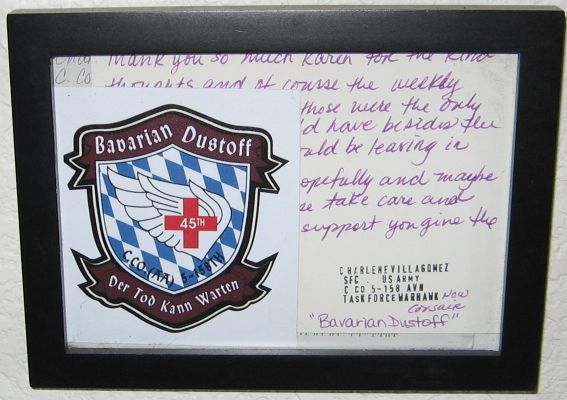 Thank you so much Karen for the kind
C. Co
thoughts and of course the weekly
those were the only
'd have besides the
uld be leaving in
opefully and maybe
se take care and
support you give the
Bavarian Dustoff
45TH
C CO. (AA) 5-158TH
Der Tod Kann Warten
CHARLENE VILLAGOMEZ
SFC . US ARMY
C CO 5-158 AVN
TASK FORCE WARHAWK Now
Corsair
"Bavarian Dustoff"